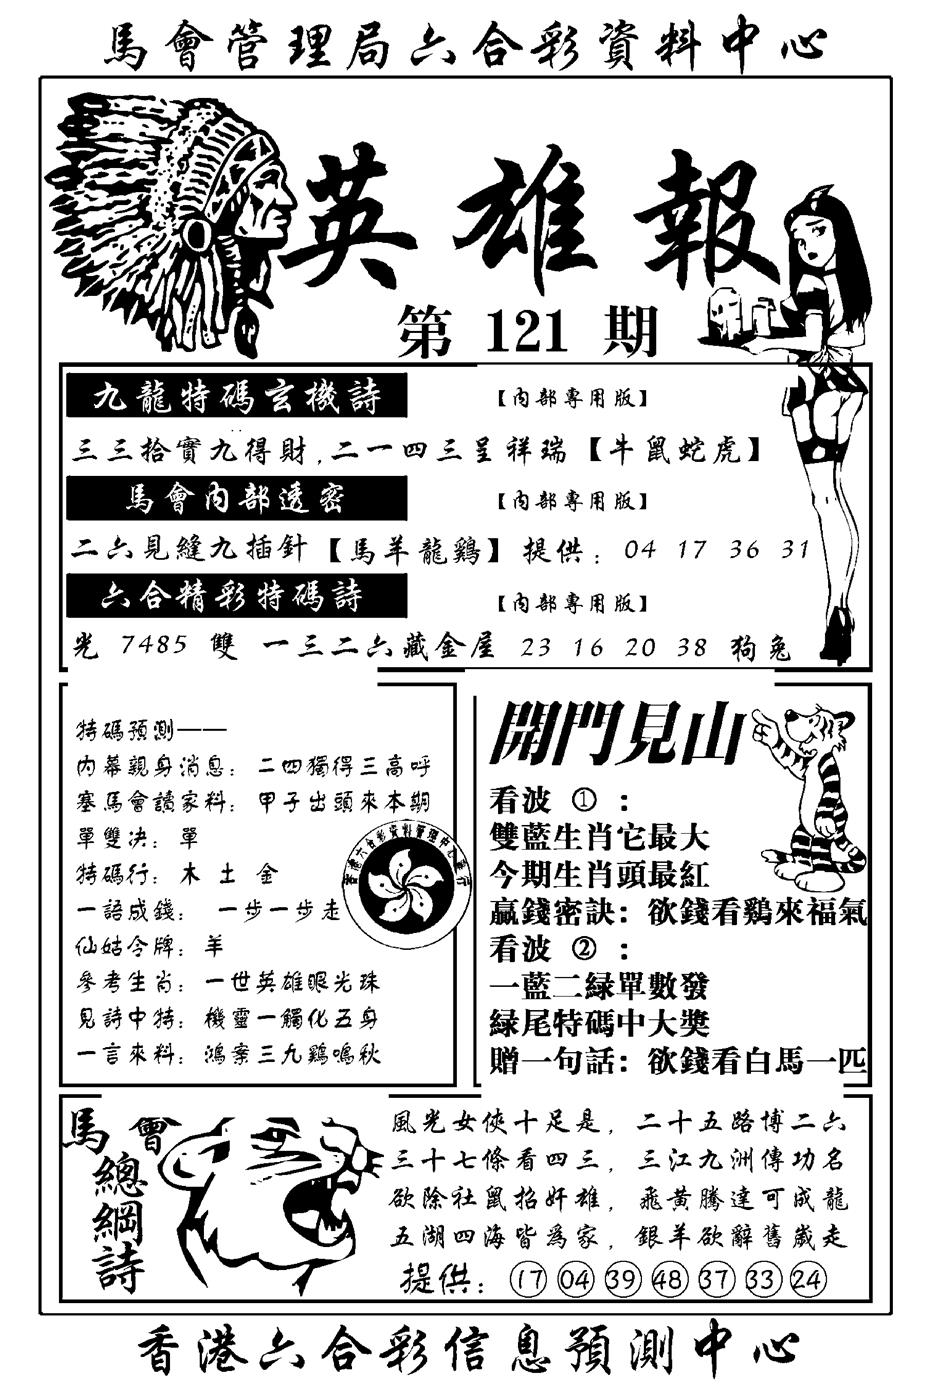 馬會管理局六合彩資料中心
英雄報
第 121 期
九龍特碼玄機詩 【內部專用版】
三三拾實九得財,二一四三呈祥瑞【牛鼠蛇虎】
馬會內部透密 【內部專用版】
二六見縫九插針【馬羊龍鷄】提供：04 17 36 31
六合精彩特碼詩 【內部專用版】
光 7485 雙 一三二六藏金屋 23 16 20 38 狗兔
特碼預測——
內幕親身消息：二四獨得三高呼
塞馬會讀家料：甲子出頭來本期
單雙决：單
特碼行：木 土 金
一語成錢： 一步一步走
仙姑令牌：羊
參考生肖：一世英雄眼光珠
見詩中特：機靈一觸化五身
一言來料：鴻案三九鷄鳴秋
開門見山
看波 ①：
雙藍生肖它最大
今期生肖頭最紅
贏錢密訣：欲錢看鷄來福氣
看波 ②：
一藍二緑單數發
緑尾特碼中大獎
贈一句話：欲錢看白馬一匹
馬會
總綱詩
風光女俠十足是，二十五路博二六
三十七條看四三，三江九洲傳功名
欲除社鼠招奸雄，飛黃騰達可成龍
五湖四海皆爲家，銀羊欲辭舊歲走
提供：17 04 39 48 37 33 24
香港六合彩信息預測中心